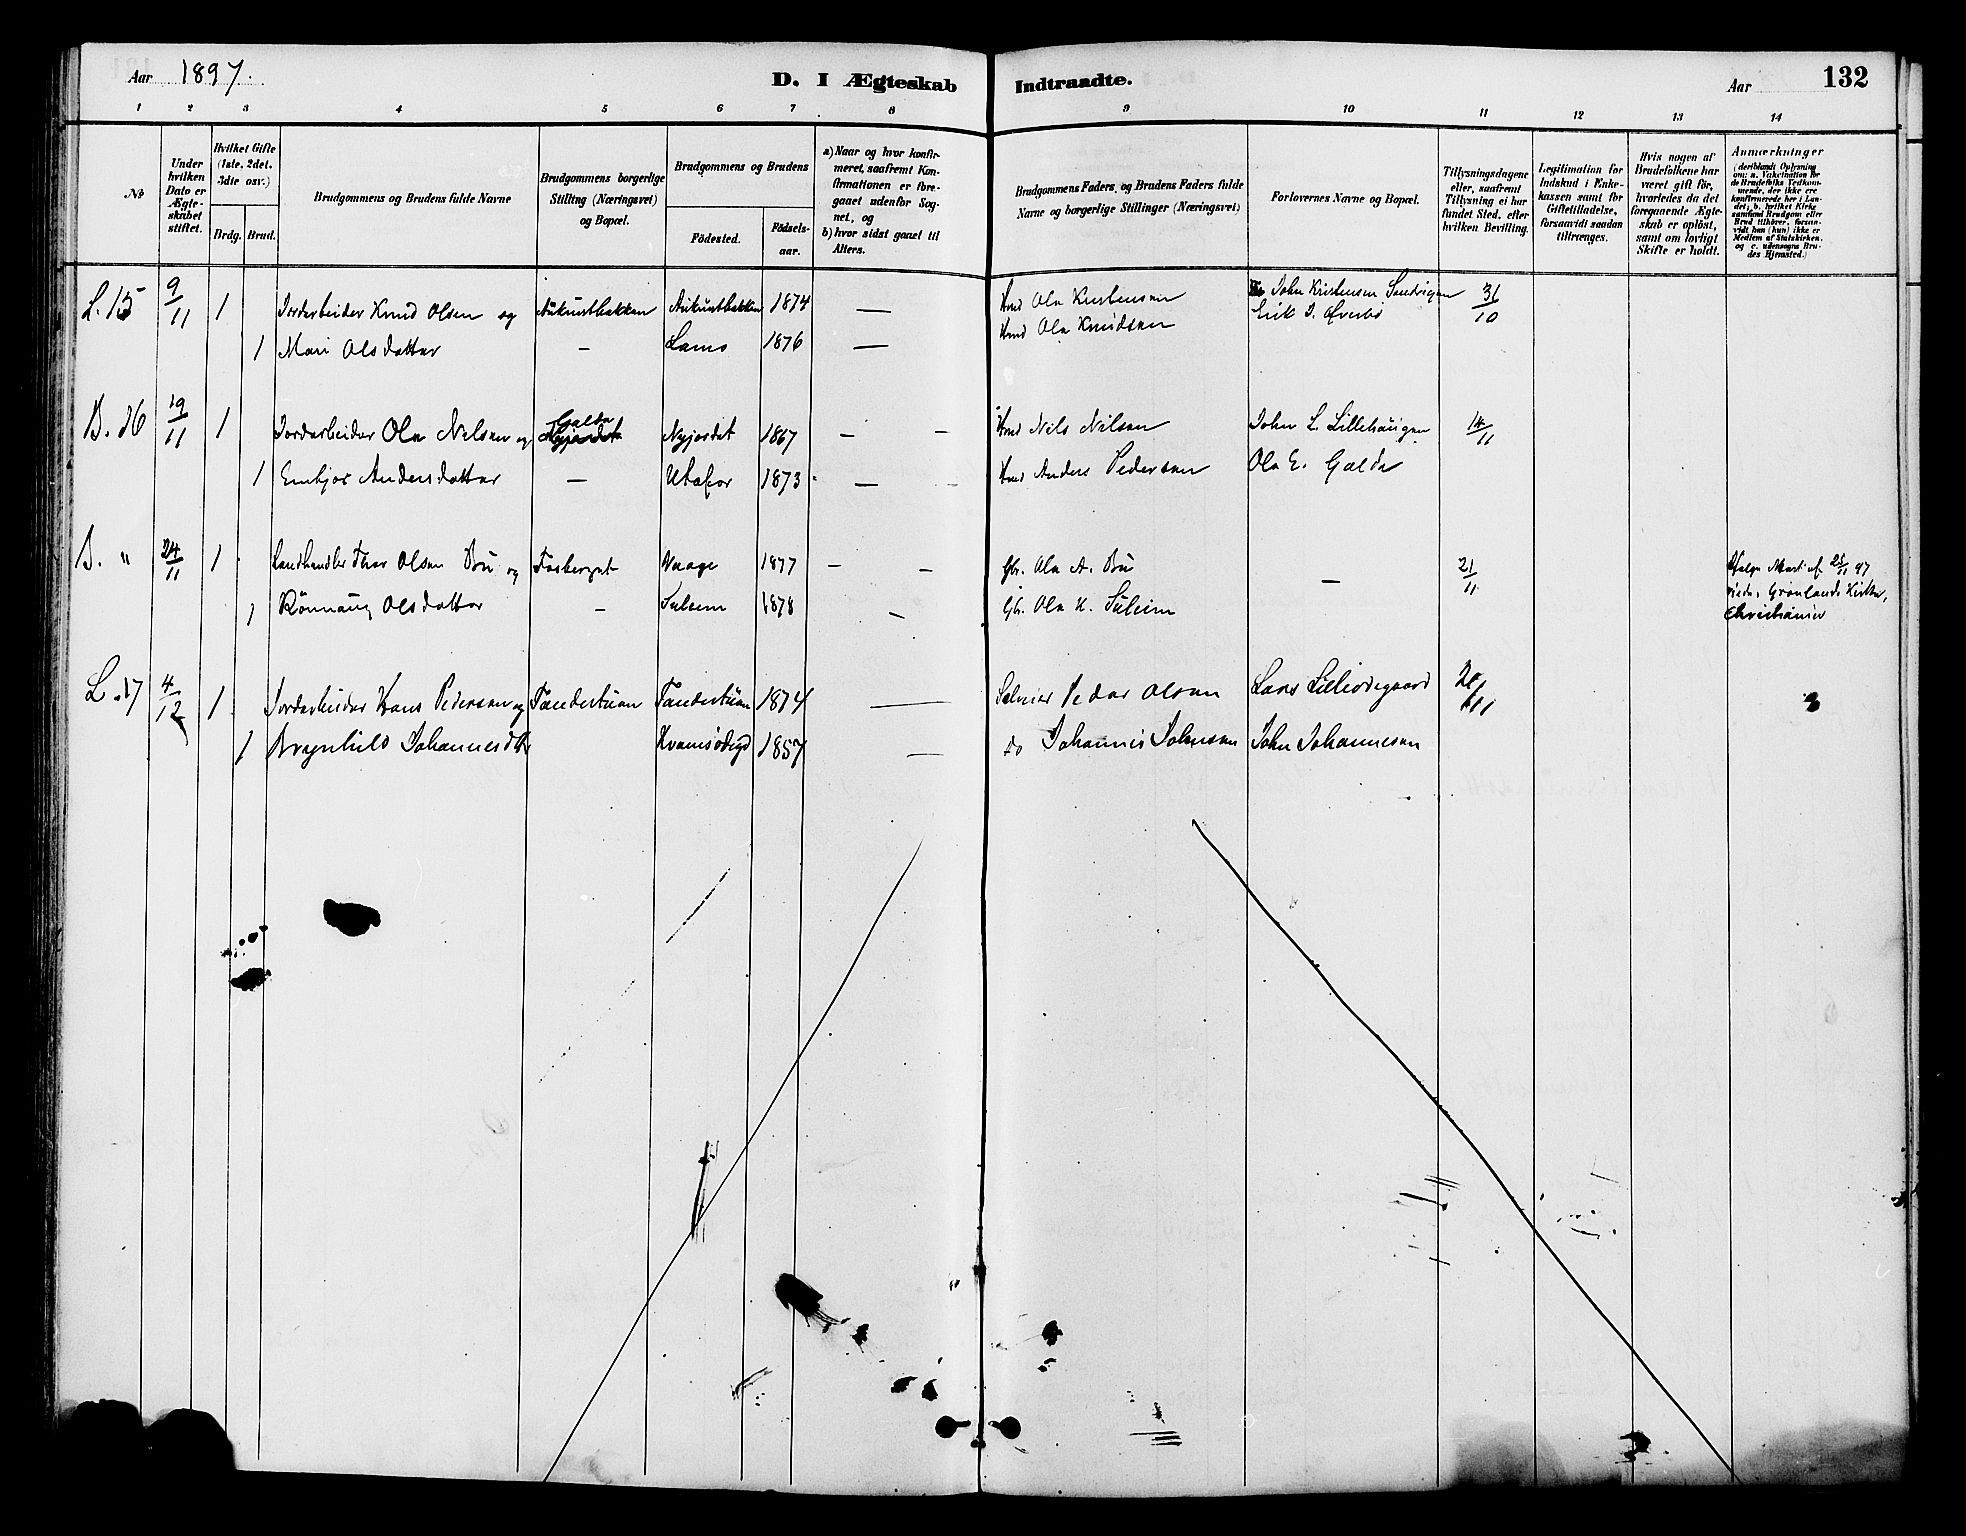 Aar 1897.
D. I Ægteskab Indtraadte.
Aar 132
1 2 3 4 5 6 7 8 9 10 11 12 13 14
No
Under hvilken Dato er Ægteskabet stiftet.
Hvilket Gifte (1ste, 2det, 3die osv.)
Brdg. Brud.
Brudgommens og Brudens fulde Navne
Brudgommens borgerlige Stilling (Næringsvei) og Bopæl.
Brudgommens og Brudens
Fødested. Fødsels-aar.
a) Naar og hvor konfir-
meret, saafremt Kon-
firmationen er fore-
gaaet udenfor Sog-
net, og
b) hvor sidst gaaet til
Alters.
Brudgommens Faders, og Brudens Faders fulde
Navne og borgerlige Stillinger (Næringsvei)
Forlovernes Navne og Bopæl.
Tillysningsdagene
eller, saafremt
Tillysning ei har
fundet Sted, efter
hvilken Bevilling.
Legitimation for
Indskud i Enke-
kassen samt for
Giftetilladelse,
forsaavidt saadan
tiltrænges.
Hvis nogen af
Brudefolkene har
været gift før,
hvorledes da det
foregaaende Ægte-
skab er opløst,
samt om lovligt
Skifte er holdt.
Anmærkninger
(deriblandt Oplysning
om: a. Vakcination for
de Brudefolks Vedkom-
mende, der ikke ere
konfirmerede her i Lan-
det; b. hvilket Kirke-
samfund Brudgom eller
Brud tilhører, forsaa-
vidt han (hun) ikke er
Medlem af Statskirken,
og c. udensogns Bru-
des Hjemsted.)
L. 15 9/11 1 Jordarbeider Knud Olsen og Aukrustbakken Aukrustbakken 1874 — Hmd Ola Kristensen John Kristensen Sandvigen 31/10
1 Mari Olsdatter — Loms 1876 — Hmd Ola Knudsen Erik J. Øverbø
B. 16 19/11 1 Jordarbeider Ola Nilsen og Galde Nyjordet Nyjordet 1867 — — Hmd Nils Nilsen John L. Lillehaugen 14/11
1 Embjør Andersdatter — Utafor 1873 — — Hmd Anders Pedersen Ola E. Galde
B. " 24/11 1 Landhandler Thor Olsen Bu og Fosberget Vaage 1877 — — Gbr. Ola A. Bu — 21/11 Ifølge Attest af 25/11 97
1 Rønnaug Olsdatter — Sulem 1878 — Gbr. Ola K. Suleim viede i Grønlands Kirke,
Christiania
L. 17 4/12 1 Jordarbeider Hans Pedersen og Tandestuen Tandestuen 1874 — Selveier Peder Olsen Lars Lilleødegaard
1 Bragnhild Johannesdtr Kvamsødegd 1857 — Do Johannes Johnsen John Johannesen